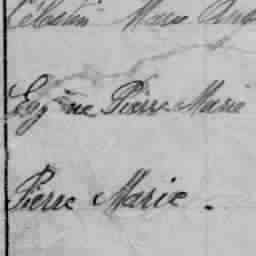 Célestin Marie Aug
Eugène Pierre Marie
Pierre Marie.